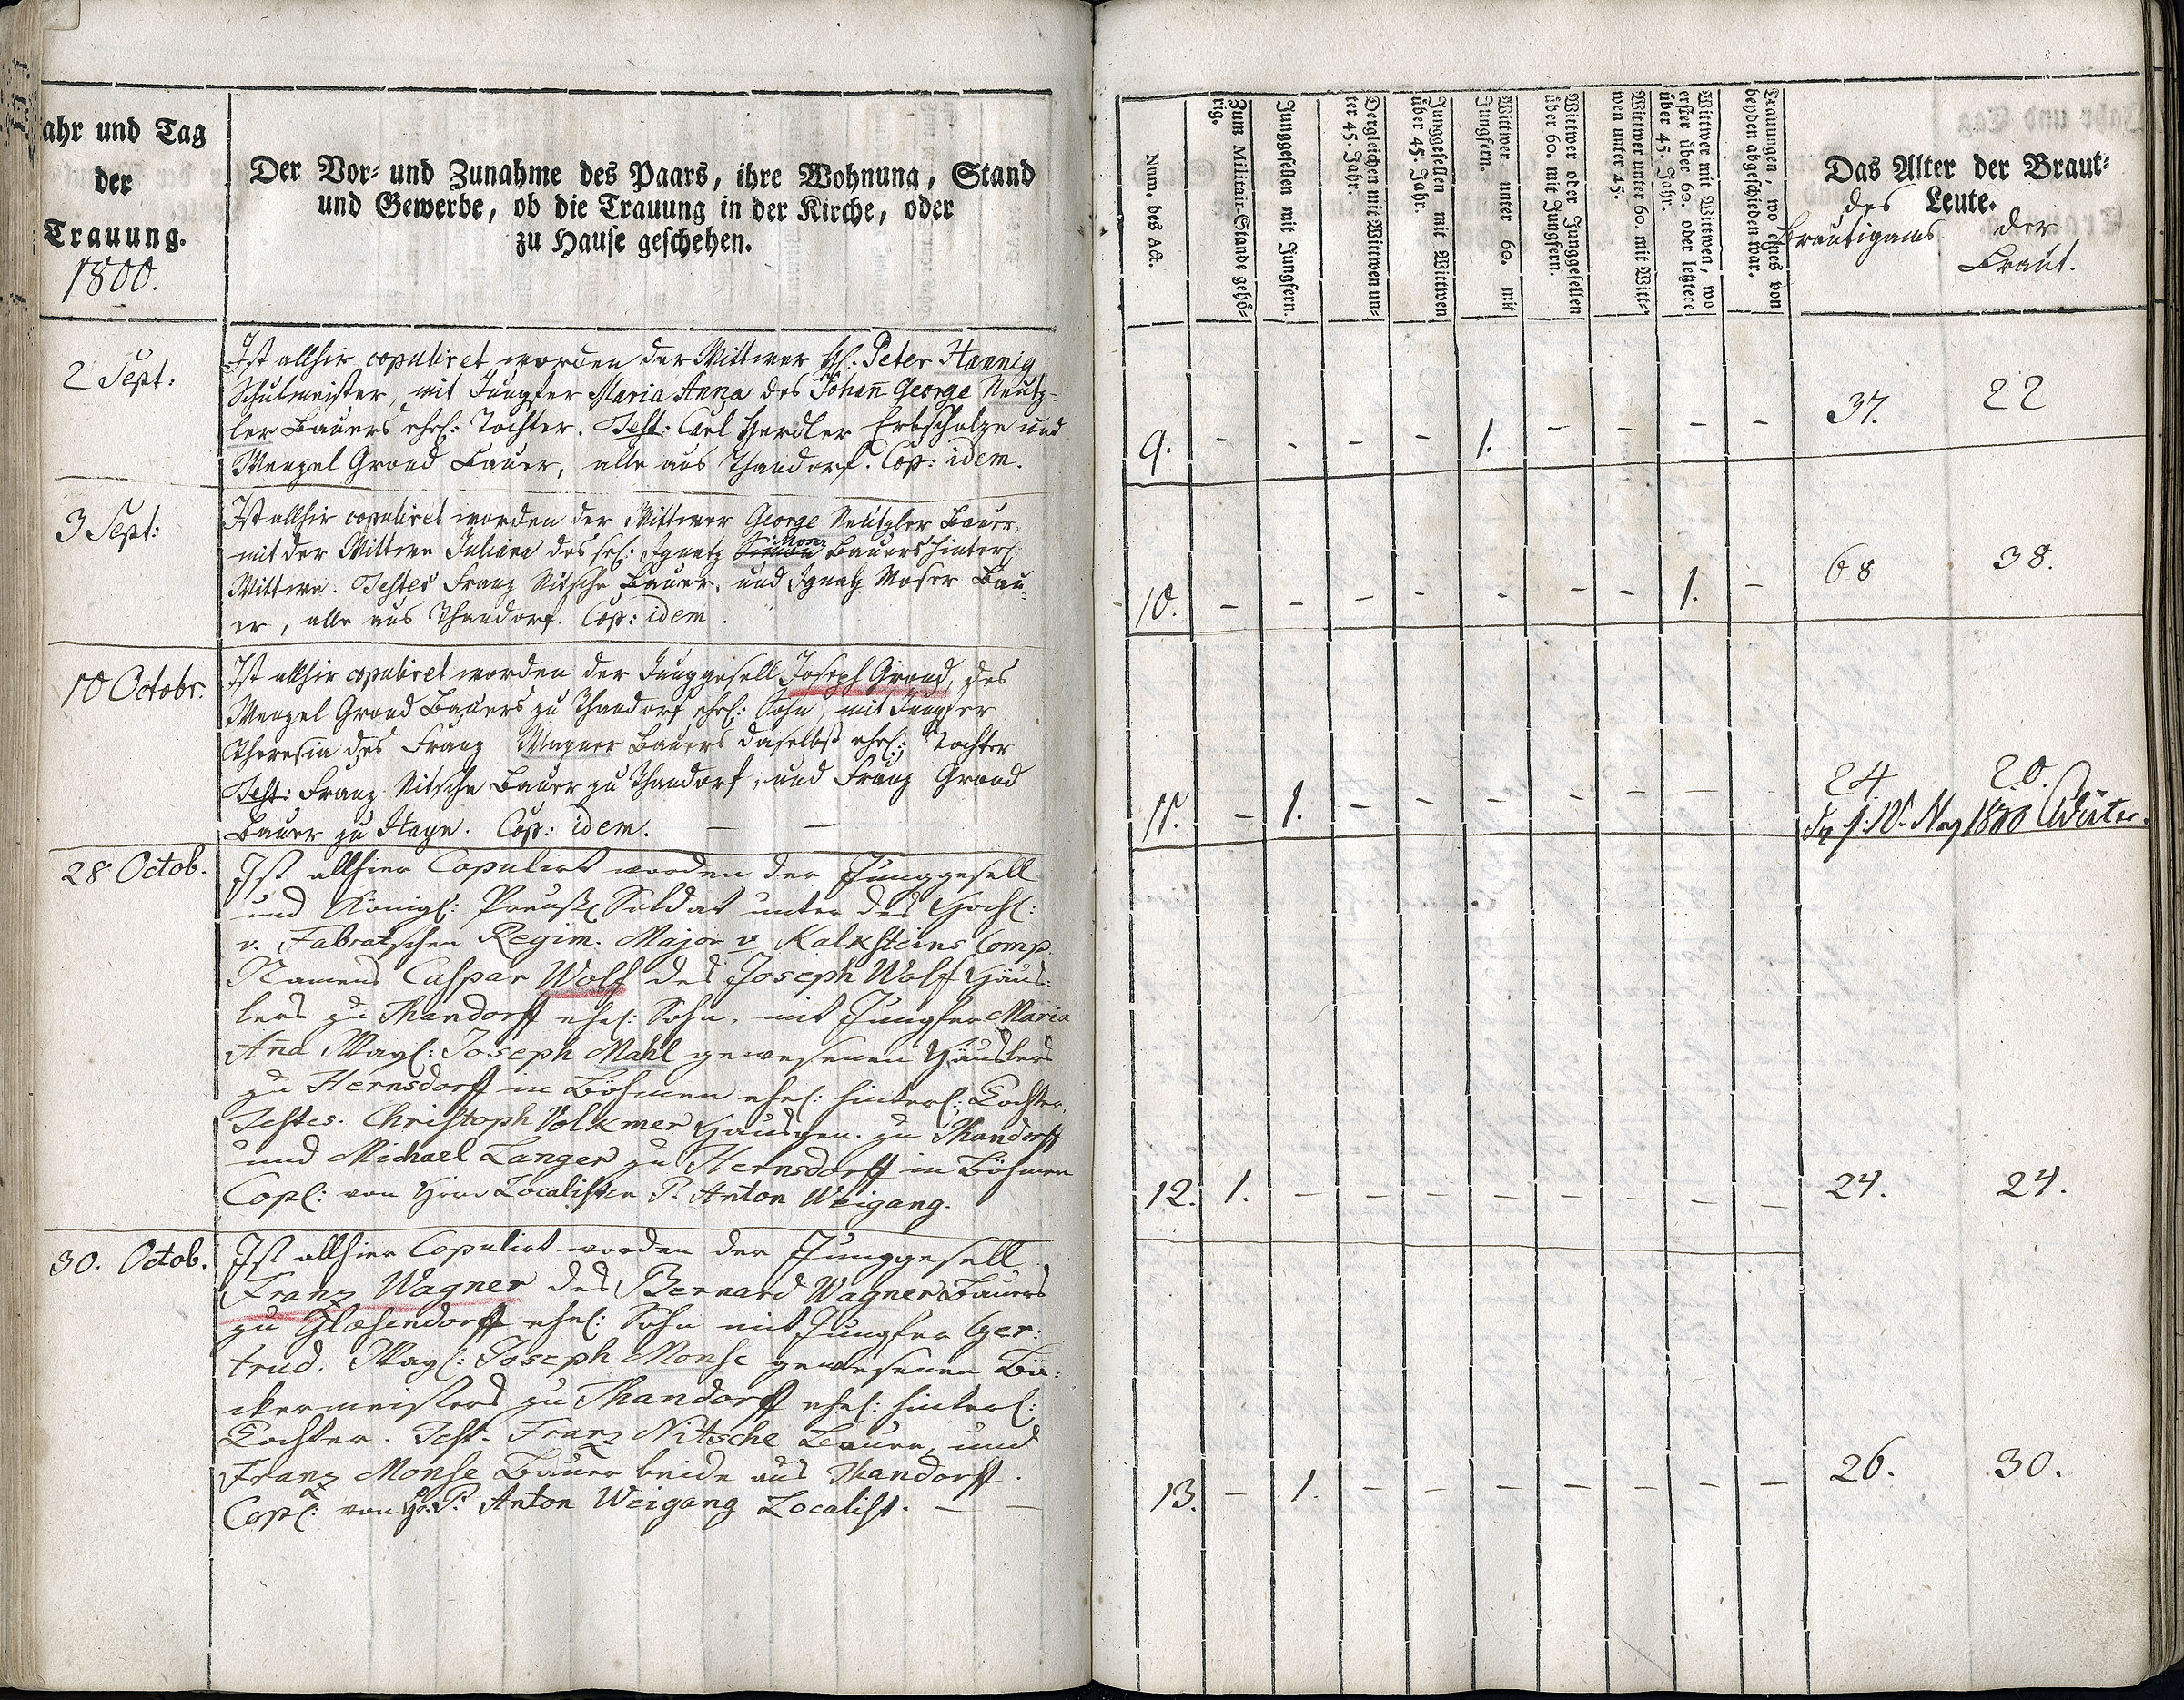 ahr und Tag
der
Trauung.
1800.
Der Vor- und Zunahme des Paars, ihre Wohnung, Stand
und Gewerbe, ob die Trauung in der Kirche, oder
zu Hause geschehen.
2 Sept:
Ist allhir copuliret worden der Wittwer H: Peter Hannig
Schulmeister, mit Jungfer Maria Anna des Johañ George Neutz-
ler Bauers ehel: Tochter. Test: Carl Herdler Erbscholze und
Wenzel Grond Bauer, alle aus Thandorf. Cop: idem.
3 Sept:
Ist allhir copuliret worden der Wittwer George Neutzler Bauer,
mit der Wittwe Juliana des sel: Ignatz Simon Moser Bauers hinterl:
Wittwe. Testes Franz Nitsche Bauer, und Ignatz Moser Bau-
er, alle aus Thandorf. Cop: idem.
10 Octobr.
Ist allhir copuliret worden der Junggesell Joseph Grond, des
Wenzel Grond Bauers zu Thandorf ehel: Sohn, mit Jungfer
Theresia des Franz Wagner Bauers daselbst ehel: Tochter
Test: Franz Nitsche Bauer zu Thandorf, und Franz Grond
Bauer zu Stayn. Cop: idem. — —
28 Octob.
Ist allhier Copulirt worden der Junggesell
und Königl: Preuß Soldat unter des Hochl:
v. Fabratschen Regim. Major v Kalksteins Comp.
Namens Caspar Wolf des Joseph Wolf Häus-
lers zu Thandorff ehel: Sohn, mit Jungfer Maria
Aña Wayl: Joseph Mahl gewesenen Häuslers
zu Hernsdorff in Böhmen ehel: hinterl: Tochter.
Testes. Christoph Volkmer Hausgen. zu Thandorff
und Michael Langer zu Hernsdorff in Böhmen
Copl: von Herrn Localisten P. Anton Weigang.
30. Octob.
Ist allhier Copulirt worden der Junggesell
Franz Wagner des Bernard Wagner Bauers
zu Glæsendorff ehel: Sohn mit Jungfer Ger:
trud. Wayl: Joseph Monse gewesenen Bä:
ckermeisters zu Thandorff ehel: hinterl:
Tochter. Test. Franz Nitsche Bauer, und
Franz Monse Bauer beide aus Thandorff.
Copl: von H. P. Anton Weigang Localist. — —
Num. des Act.
Zum Militair-Stande gehö-
rig.
Junggesellen mit Jungfern.
Dergleichen mit Wittwen un-
ter 45. Jahr.
Junggesellen mit Wittwen
über 45. Jahr.
Wittwer unter 60. mit
Jungfern.
Wittwer oder Junggesellen
über 60. mit Jungfern.
Wittwer unter 60. mit Witt-
wen unter 45.
Wittwer mit Wittwen, wo
erster über 60. oder letztere
über 45. Jahr.
Trauungen, wo eines von
beyden abgeschieden war.
Das Alter der Braut-
Leute.
des
Bräutigams
der
Braut.
9. - - - - 1. - - - - 37. 22
10. - - - - - - - 1. - 68 38.
11. - 1. - - - - - - - 24. 20.
12. 1. - - - - - - - - 24. 24.
13. - 1. - - - - - - - 26. 30.